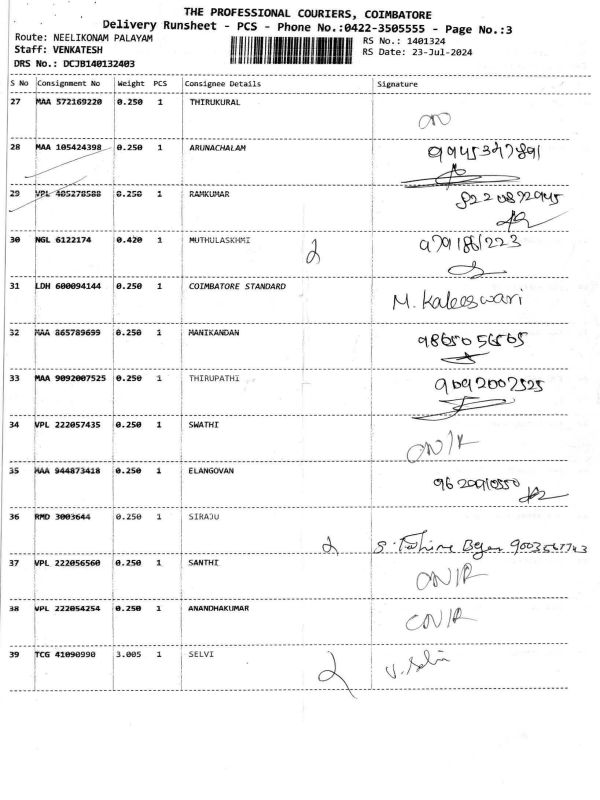 THE PROFESSIONAL COURIERS, COIMBATORE
Delivery Runsheet - PCS - Phone No.:0422-3505555 - Page No.:3
Route: NEELIKONAM PALAYAM
RS No.: 1401324
Staff: VENKATESH
RS Date: 23-Jul-2024
DRS No.: DCJB140132403
S No Consignment No Weight PCS Consignee Details Signature
27 MAA 572169220 0.250 1 THIRUKURAL
28 MAA 105424398 0.250 1 ARUNACHALAM 9945347891
29 VPL 405278588 0.250 1 RAMKUMAR 8220872945
30 NGL 6122174 0.420 1 MUTHULASKHMI 2 9791861223
31 LDH 600094144 0.250 1 COIMBATORE STANDARD M. Kaleeswari
32 MAA 865789699 0.250 1 MANIKANDAN 9865056565
33 MAA 9092007525 0.250 1 THIRUPATHI 9092007525
34 VPL 222057435 0.250 1 SWATHI
35 MAA 944873418 0.250 1 ELANGOVAN
36 RMD 3003644 0.250 1 SIRAJU 2
37 VPL 222056560 0.250 1 SANTHI
38 VPL 222054254 0.250 1 ANANDHAKUMAR
39 TCG 41090990 3.005 1 SELVI 2